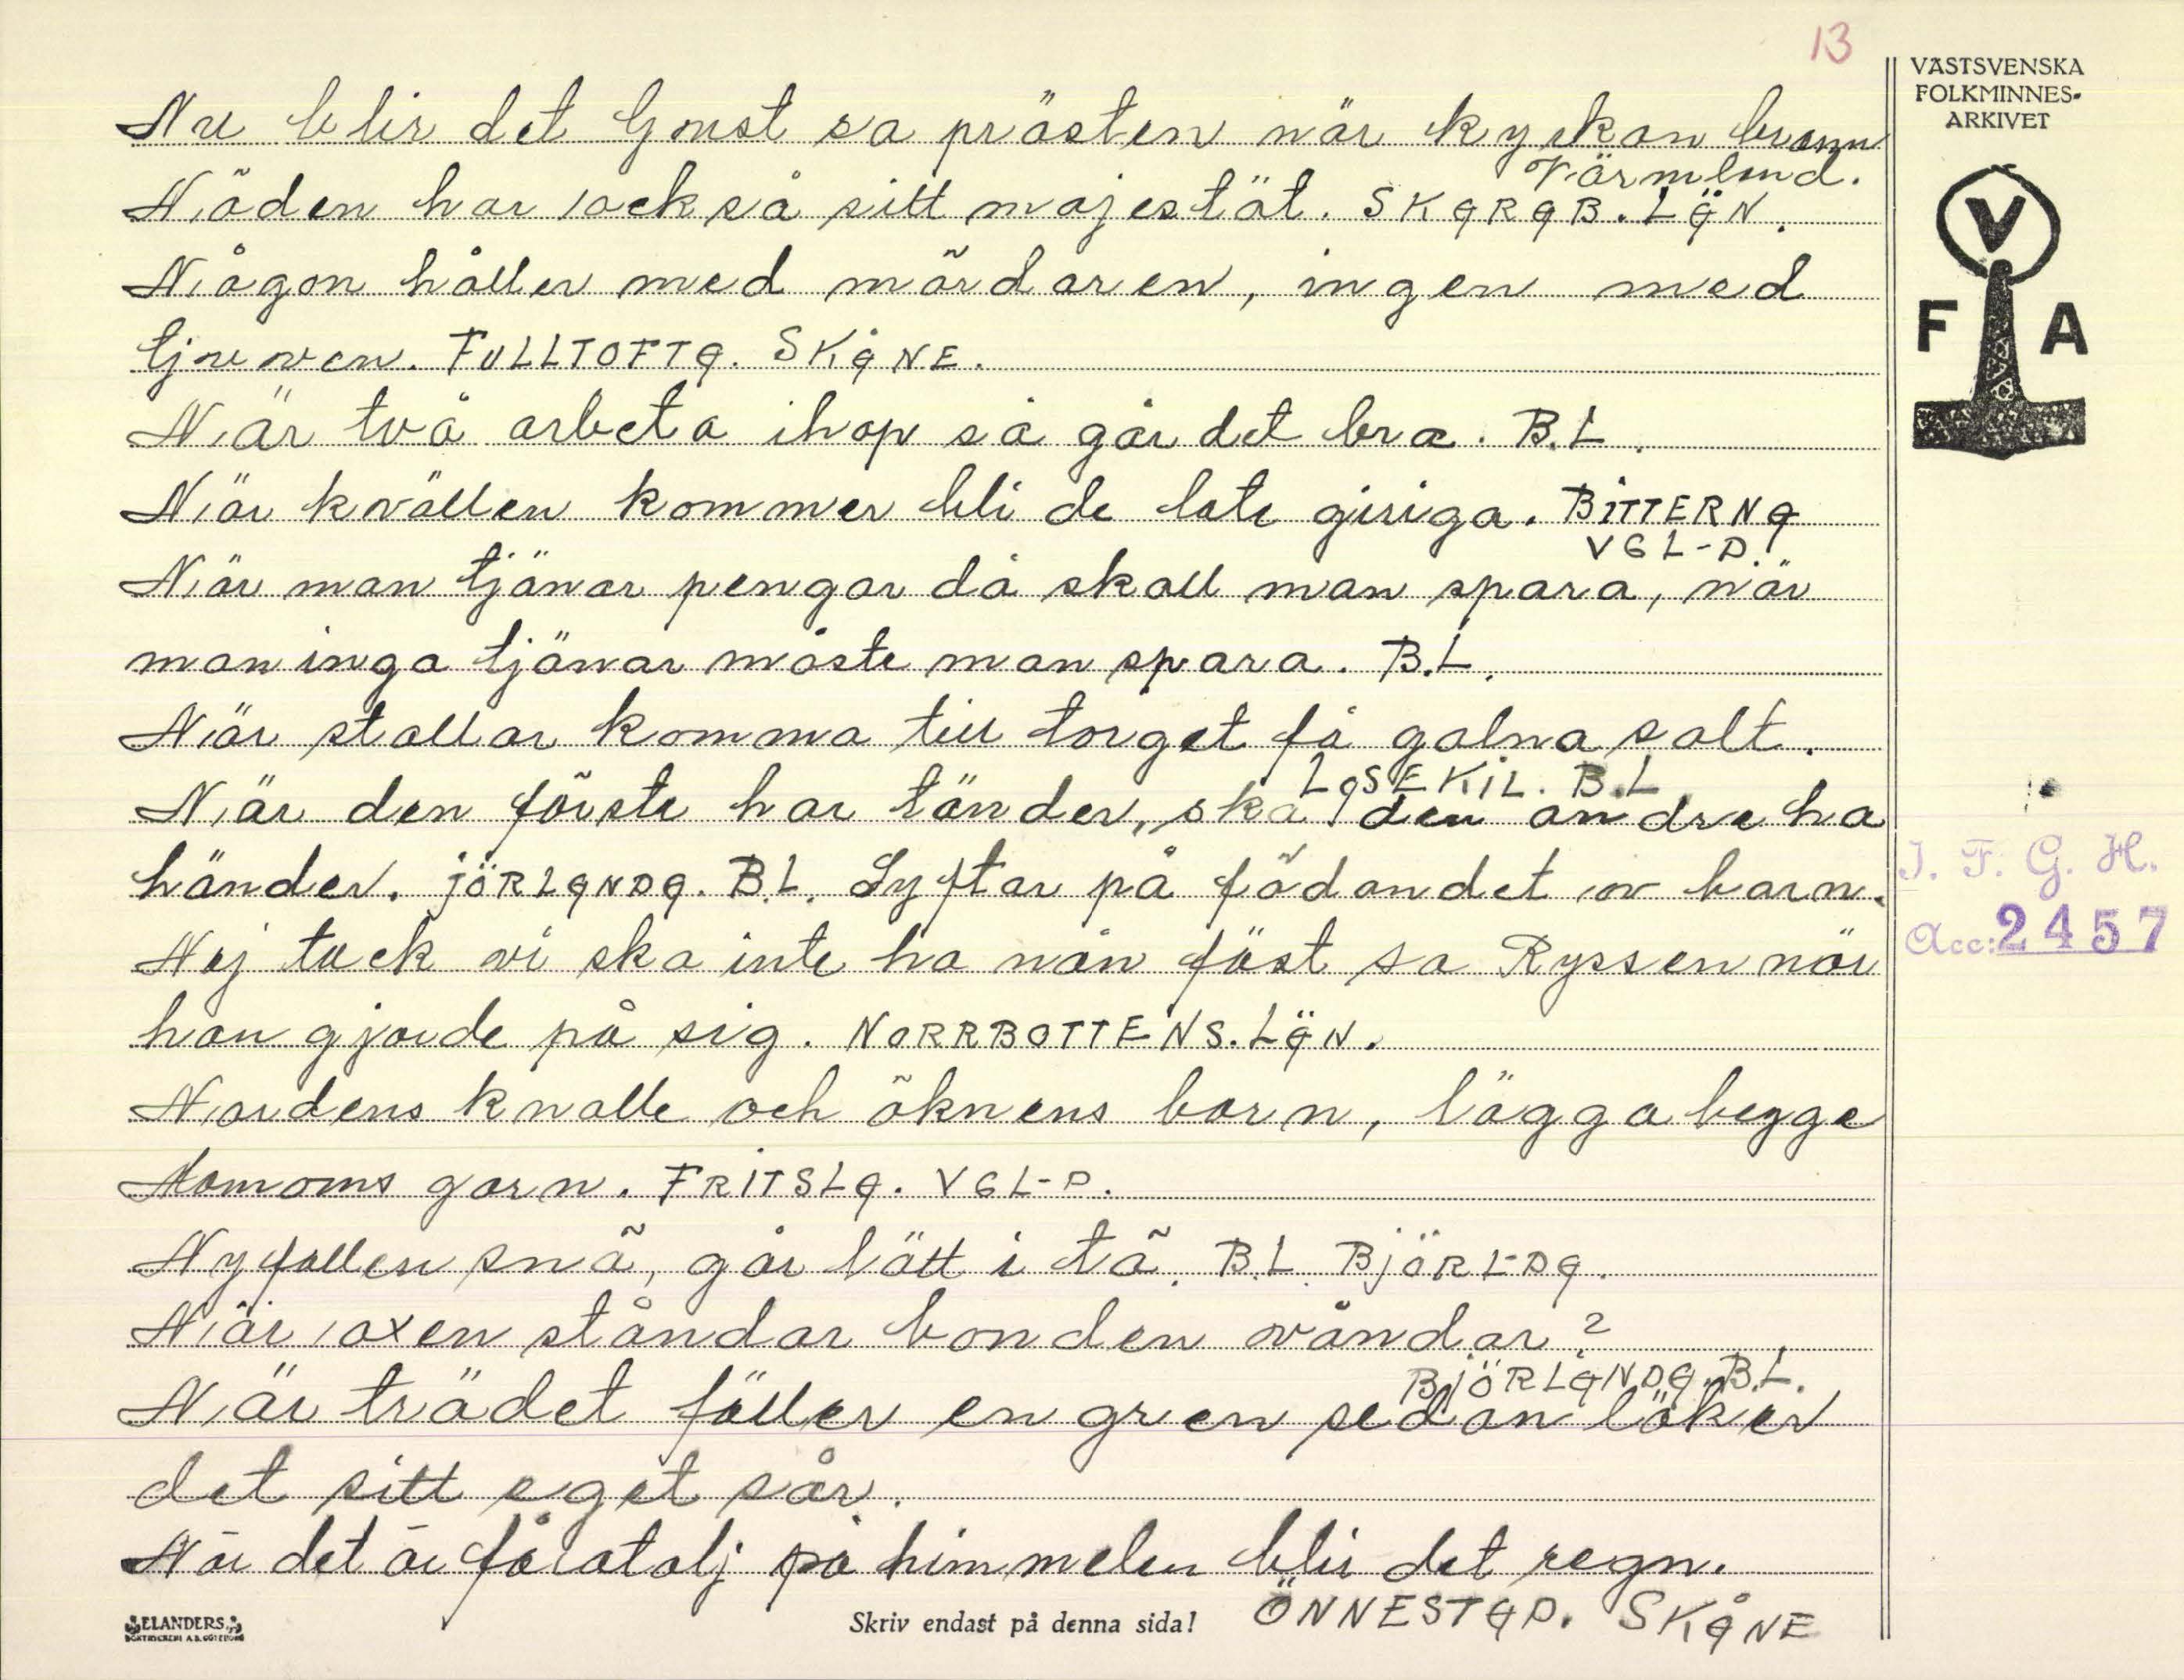 13
VÄSTSVENSKA
FOLKMINNES-
ARKIVET
V
F A
Nu blir det ljust sa prästen när kyrkan brann
Värmland.
Nöden har också sitt majestät. SKARAB. LÄN.
Någon håller med mördaren, ingen med
tjuven. FULLTOFTA. SKÅNE.
När två arbeta ihop så går det bra. B.L.
När kvällen kommer bli de late giriga. BITTERNA
VGL-D.
När man tjänar pengar då skall man spara, när
man inga tjänar måste man spara. B.L.
När stallar komma till torget få galna salt.
LYSEKIL. B.L.
När den förste har tänder, ska den andre ha
händer. JÖRLANDA. B.L. Syftar på födandet av barn.
Nej tack vi ska inte ha nån fäst sa Ryssen när
han gjorde på sig. NORRBOTTENS. LÄN.
Nordens knalle och öknens barn, lägga begge
Mamons garn. FRITSLA. VGL-D.
Nyfallen snö, går lätt i tö. B.L. BJÖRL-DA.
När oxen ståndar bonden våndar?
BJÖRLANDA. B.L.
När trädet fäller en gren sedan läker
det sitt eget sår.
När det är fåratalj på himmelen blir det regn.
ÖNNESTAD. SKÅNE
J. F. G. H.
Acc: 2457
ELANDERS
BOKTRYCKERI A.B. GÖTEBORG
Skriv endast på denna sida!